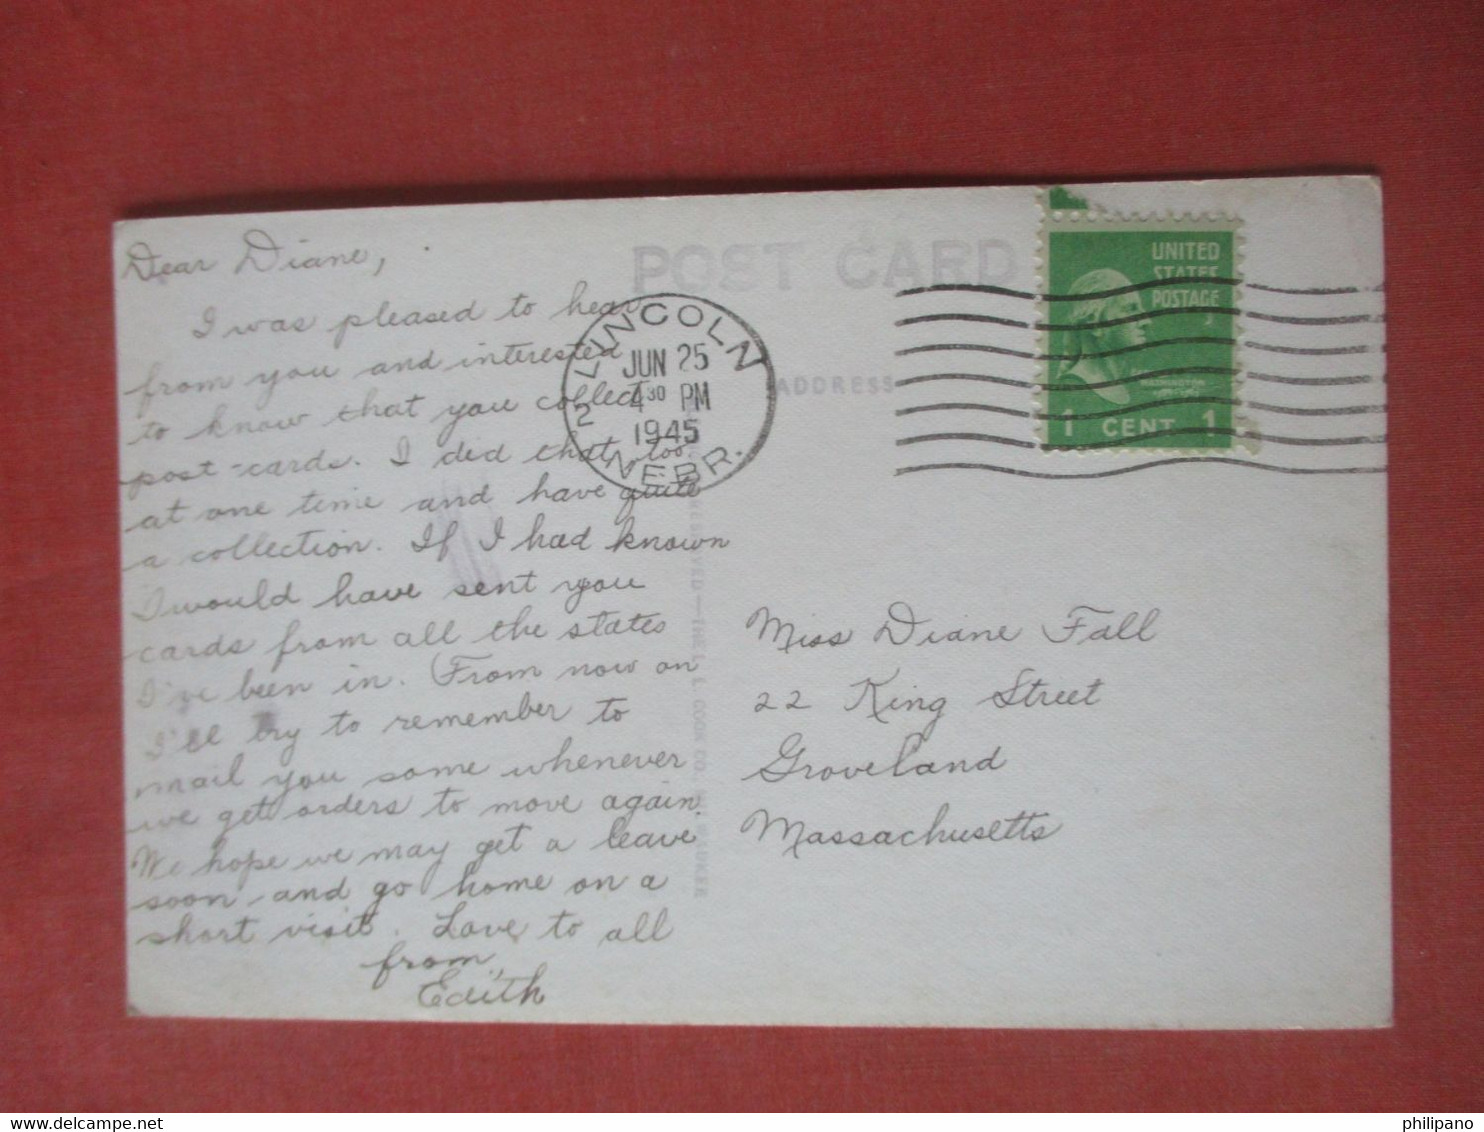 Dear Diane,
I was pleased to hear
from you and interested
to know that you collect
post-cards. I did that, too,
at one time and have quite
a collection. If I had known
I would have sent you
cards from all the states
I've been in. From now on
I'll try to remember to
mail you some whenever
we get orders to move again.
We hope we may get a leave
soon and go home on a
short visit. Love to all
from
Edith
POST CARD
ADDRESS
LINCOLN 2
JUN 25
4 30 PM
1945
NEBR.
UNITED
STATES
POSTAGE
1 CENT 1
RESERVED—THE L. L. COOK CO., MILWAUKEE
Miss Diane Fall
22 King Street
Groveland
Massachusetts
philipano